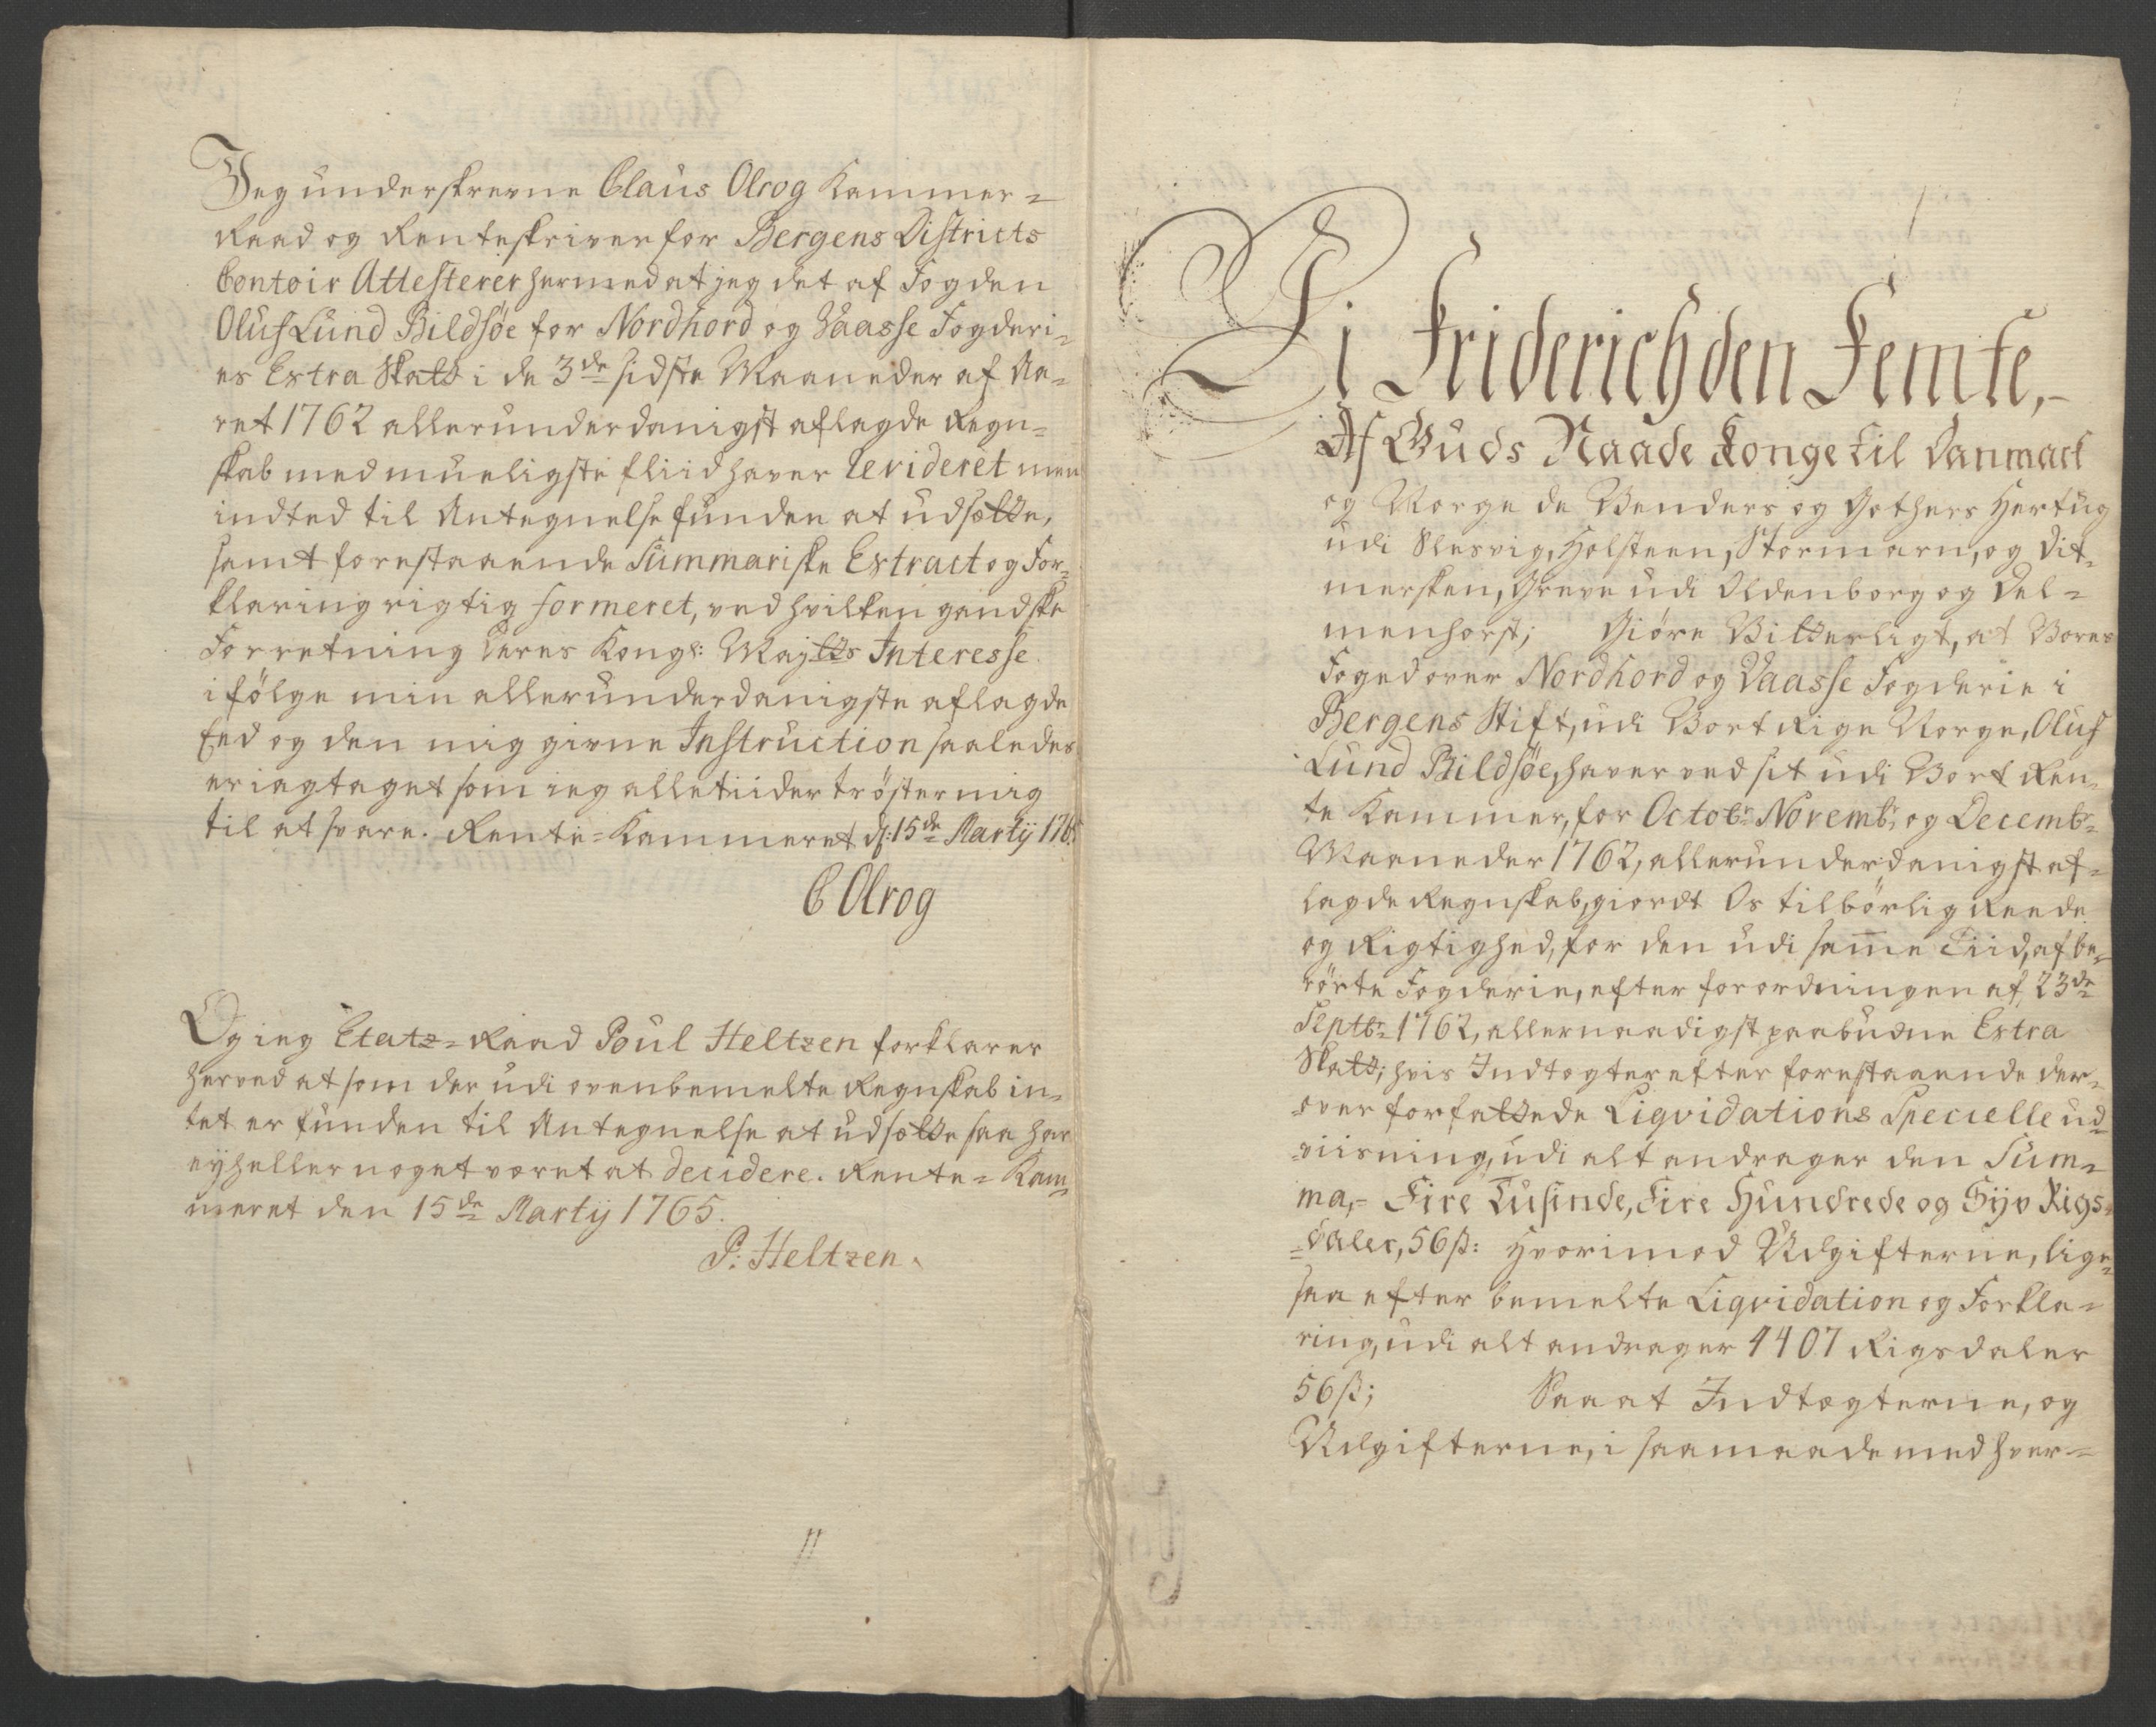 Jeg underskrevne Claus Olrog Kammer=
Raad og Renteskriver for Bergens Districts
Contoir Attesterer hermed at jeg det af Fogden
Oluf Lund Bildsøe for Nordhord og Vaasse Fogderi=
es Extra Skatt i de 3de sidste Maaneder af Aa=
ret 1762 allerunderdanigst aflagde Regn=
skab med mueligste fliid haver Revideret men
indted til Antegnelse funden at udsætte,
samt forestaaende Summariske Extract og For=
klaring rigtig formeret, ved hvilken gandske
Forretning Deres Kongl: Maytts Interesse
i følge min allerunderdanigste aflagde
Eed og den mig givne Instruction saaledes
er iagtaget som ieg alletiider trøster mig
til at svare. Rente=Kammeret d: 15de Martij 1765
C Olrog
Og ieg Etatz=Raad Poul Heltzen forklarer
herved at som der udi ovenbemelte Regnskab in=
tet er funden til Antegnelse at udsætte saa har
eyheller noget været at decidere. Rente=Kam=
meret den 15de Martij 1765.
P: Heltzen.
Vi Friderich den Femte,-
Af Guds Naade Konge til Danmark
og Norge de Venders og Gothers Hertug
udi Slesvig, Holsteen, Stormarn, og Dit=
mersken, Greve udi Oldenborg og Del=
menhorst; Giøre Vitterligt, at Vores
Foged over Nordhord og Vaasse Fogderie i
Bergens Stift, udi Vort Rige Norge, Oluf
Lund Bildsøe, haver ved sit udi Vort Ren=
te Kammer, for Octobr: Novembr: og Decembr:
Maaneder 1762, allerunderdanigst af=
lagde Regnskab, giordt Os tilbørlig Reede
og Rigtighed, for den udi same Tiid, af be=
rørte Fogderie, efter forordningen af 23de
Septbr: 1762, allernaadigst paabudne Extra
Skatt; hvis Indtægter efter forestaaende der=
=over forfattede Liqvidations Specielle ud=
=viisning, udi alt andrager den Sum=
ma,= Fire Tusinde, Fire Hundrede og Syv Rigs=
=daler, 56 ß: Hvorimod Udgifterne, lige=
saa efter bemelte Liqvidation og Forkla=
ring, udi alt andrager 4407 Rigsdaler
56 ß; Saa at Indtægterne, og
Udgifterne, i saamaade med hver=